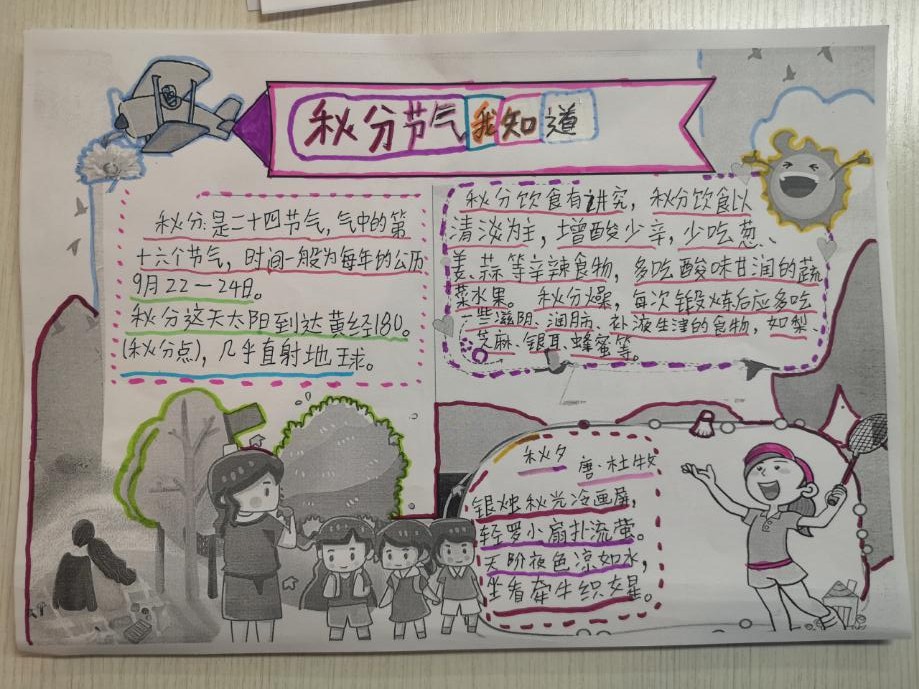 秋分节气我知道
秋分:是二十四节气,气中的第
十六个节气,时间一般为每年的公历
9月22—24日。
秋分这天太阳到达黄经180。
(秋分点),几乎直射地球。
秋分饮食有讲究,秋分饮食以
清淡为主,增酸少辛,少吃葱、
姜、蒜等辛辣食物,多吃酸味甘润的蔬
菜水果。 秋分燥,每次锻炼后应多吃
一些滋阴、润肺、补液生津的食物,如梨
芝麻、银耳、蜂蜜等。
秋夕
唐·杜牧
银烛秋光冷画屏,
轻罗小扇扑流萤。
天阶夜色凉如水,
坐看牵牛织女星。